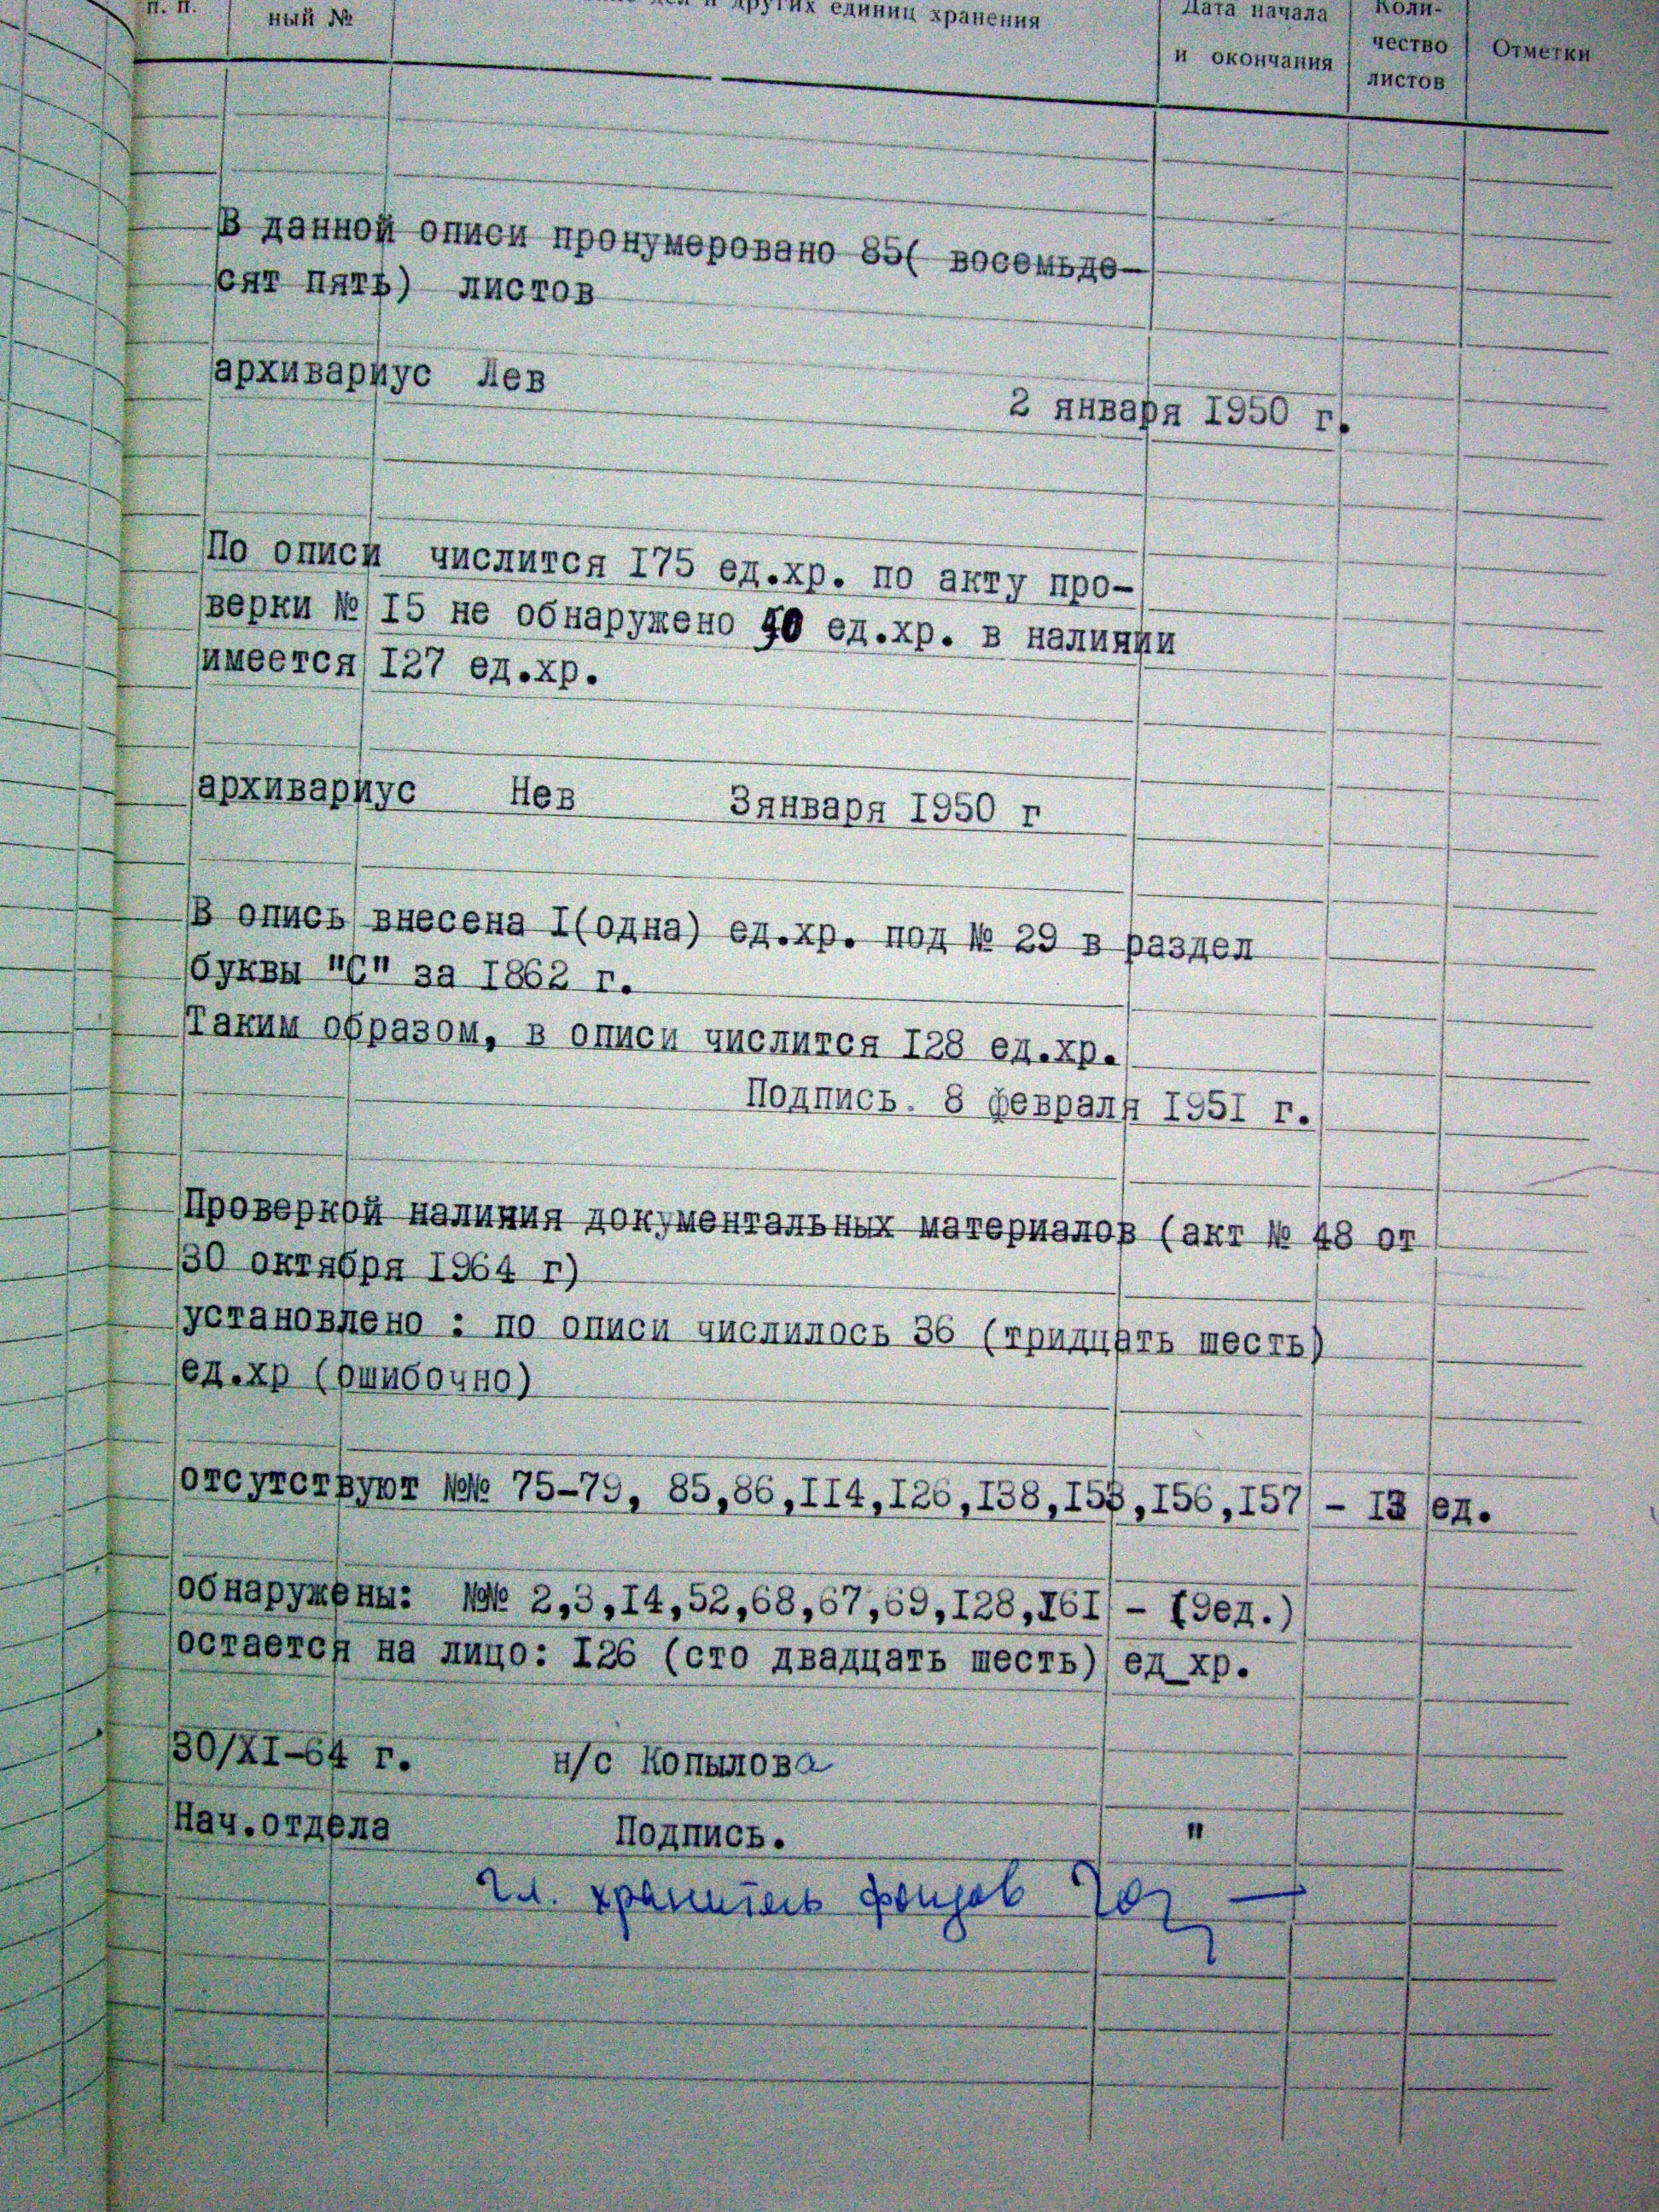 п. п.
ный №
других единиц хранения
Дата начала
и окончания
Коли-
чество
листов
Отметки
В данной описи пронумеровано 85( восемьде-
сят пять) листов
архивариус Лев
2 января 1950 г.
По описи числится 175 ед.хр. по акту про-
верки № 15 не обнаружено ед.хр. в наличии
имеется 127 ед.хр.
архивариус Лев 3января 1950 г
В опись внесена I(одна) ед.хр. под № 29 в раздел
буквы "С" за 1862 г.
Таким образом, в описи числится 128 ед.хр.
Подпись. 8 февраля 1951 г.
Проверкой наличия документальных материалов (акт № 48 от
30 октября 1964 г)
установлено : по описи числилось 36 (тридцать шесть)
ед.хр (ошибочно)
отсутствуют №№ 75-79, 85,86,114,126,138,153,156,157 - 13 ед.
обнаружены: №№ 2,3,14,52,68,67,69,128,161 - (9ед.)
остается на лицо: 126 (сто двадцать шесть) ед_хр.
30/XI-64 г. н/с Копылова
Нач.отдела Подпись. "
Гл. хранитель фондов